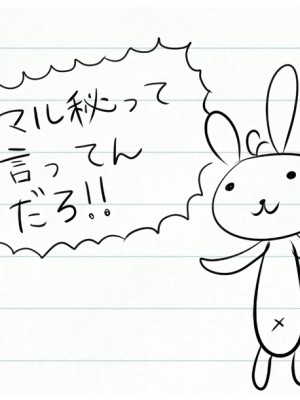 マル秘って
言ってん
だろ!!